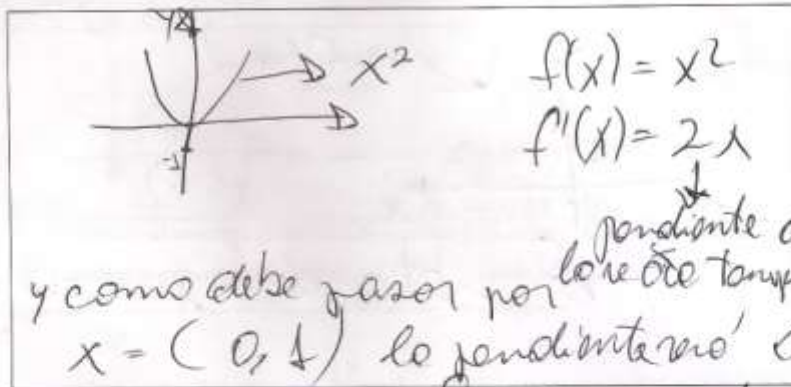 x²
-1
f(x) = x²
f'(x) = 2x
pendiente d
la recta tang
y como debe pasar por
x = ( 0, 1 ) la pendiente será